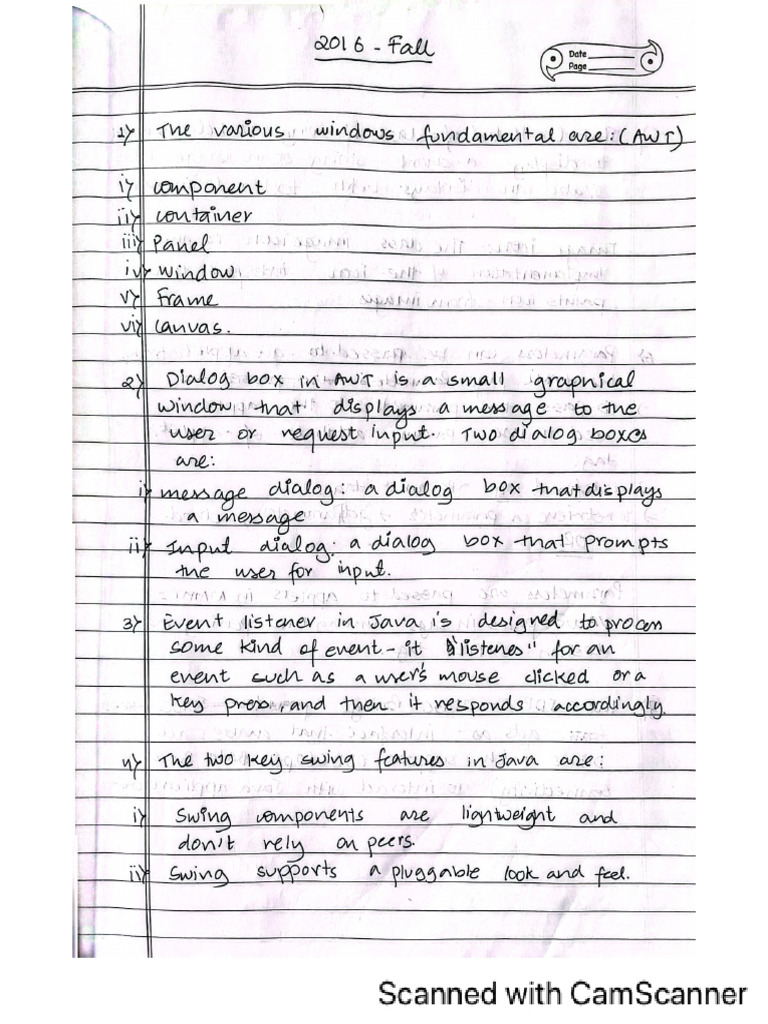 2016 - Fall
Date
Page
1) The various windows fundamental are: (AWT)
i) component
ii) container
iii) Panel
iv) window
v) Frame
vi) canvas.
2) Dialog box in AWT is a small graphical
window that displays a message to the
user or request input. Two dialog boxes
are:
i) message dialog: a dialog box that displays
a message
ii) Input dialog: a dialog box that prompts
the user for input.
3) Event listener in Java is designed to process
some kind of event - it "listenes" for an
event such as a user's mouse clicked or a
key press, and then it responds accordingly.
4) The two key swing features in Java are:
i) Swing components are lightweight and
don't rely on peers.
ii) Swing supports a pluggable look and feel.
Scanned with CamScanner